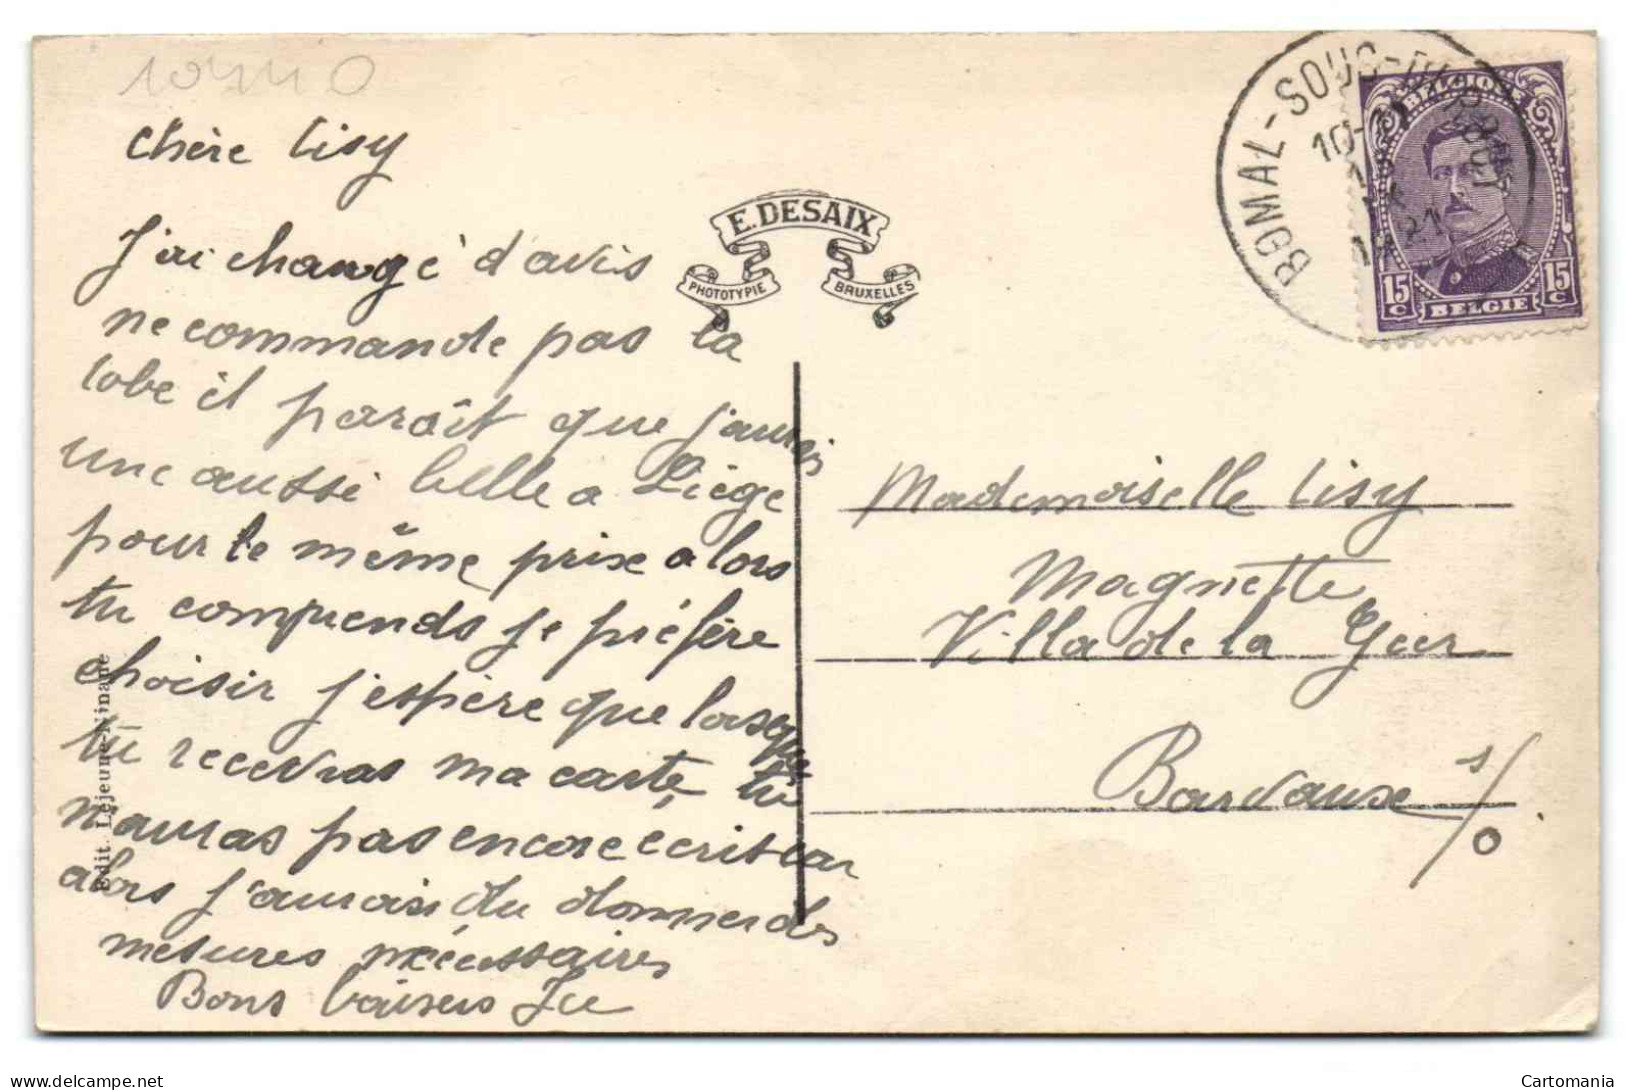 10440
Chère Lisy
J'ai changé d'avis
ne commande pas la
robe il paraît que j'aurais
une aussi belle a Liège
pour le même prix alors
tu comprends je préfère
choisir j'espère que lorsque
tu recevras ma carte, tu
n'auras pas encore écrit car
alors j'aurais du donner des
mesures nécéssaires
Bons baisers
Edit. Lejeune-Ninane
E. DESAIX
PHOTOTYPIE BRUXELLES
BOMAL-SOUS-DURBUY
10-11
IX
21
BELGIQUE
15 C BELGIE 15 C
Mademoiselle Lisy
Magnette
Villa de la
Barvaux s/o
Cartomania